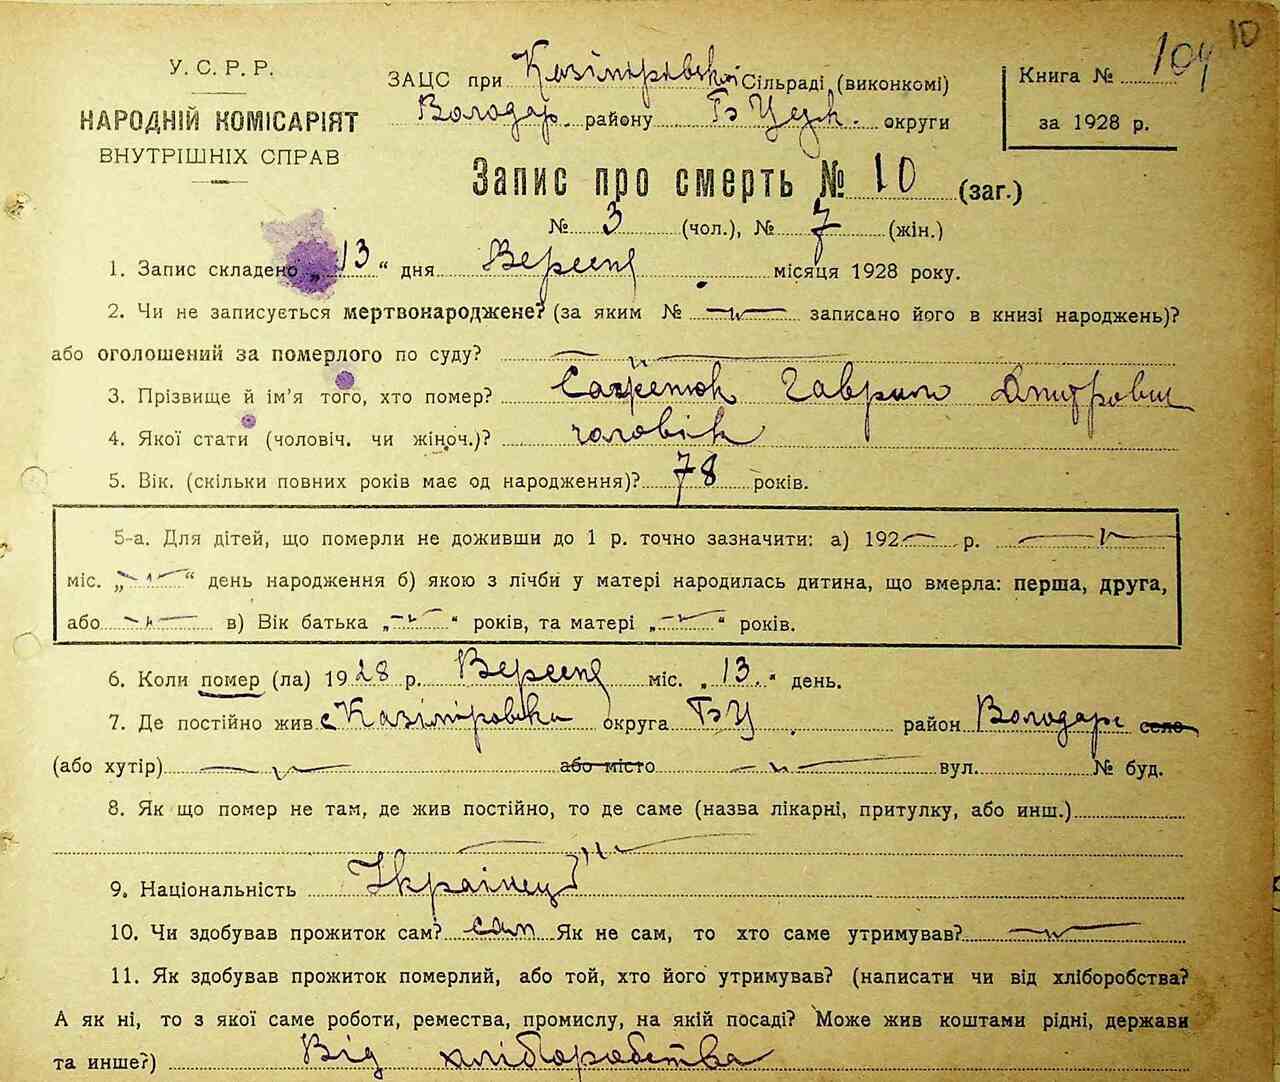 10
У. С. Р. Р.
НАРОДНІЙ КОМІСАРІЯТ
ВНУТРІШНІХ СПРАВ
ЗАЦС при Казімірівській Сільраді (виконкомі)
Володар. району Б Церк. округи
Книга № 104
за 1928 р.
Запис про смерть № 10 (заг.)
№ 3 (чол.), № 7 (жін.)
1. Запис складено „13“ дня Вересня місяця 1928 року.
2. Чи не записується мертвонароджене? (за яким № записано його в книзі народжень)?
або оголошений за померлого по суду?
3. Прізвище й ім'я того, хто помер? Гаврило Дмитрович
4. Якої стати (чоловіч. чи жіноч.)? чоловік
5. Вік. (скільки повних років має од народження)? 78 років.
5-а. Для дітей, що померли не доживши до 1 р. точно зазначити: а) 192 р.
міс. „ “ день народження б) якою з лічби у матері народилась дитина, що вмерла: перша, друга,
або в) Вік батька „ “ років, та матері „ “ років.
6. Коли помер (ла) 1928 р. Вересня міс. „13.“ день.
7. Де постійно жив с Казімировка округа БЦ. район Володарс село
(або хутір) або місто вул. № буд.
8. Як що помер не там, де жив постійно, то де саме (назва лікарні, притулку, або инш.)
9. Національність Українець
10. Чи здобував прожиток сам? сам Як не сам, то хто саме утримував?
11. Як здобував прожиток померлий, або той, хто його утримував? (написати чи від хліборобства?
А як ні, то з якої саме роботи, ремества, промислу, на якій посаді? Може жив коштами рідні, держави
та инше?) Від хліборобства